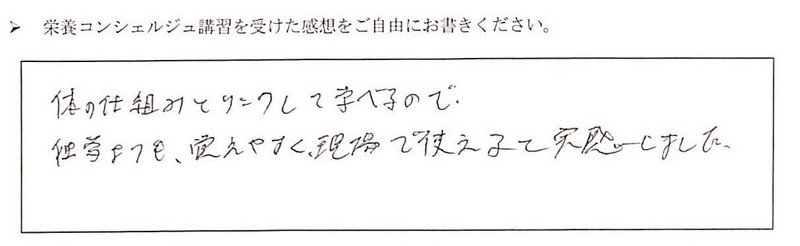 ➤ 栄養コンシェルジュ講習を受けた感想をご自由にお書きください。
体の仕組みとリンクして学べるので、
独学よりも、覚えやすく、現場で使えると実感しました。